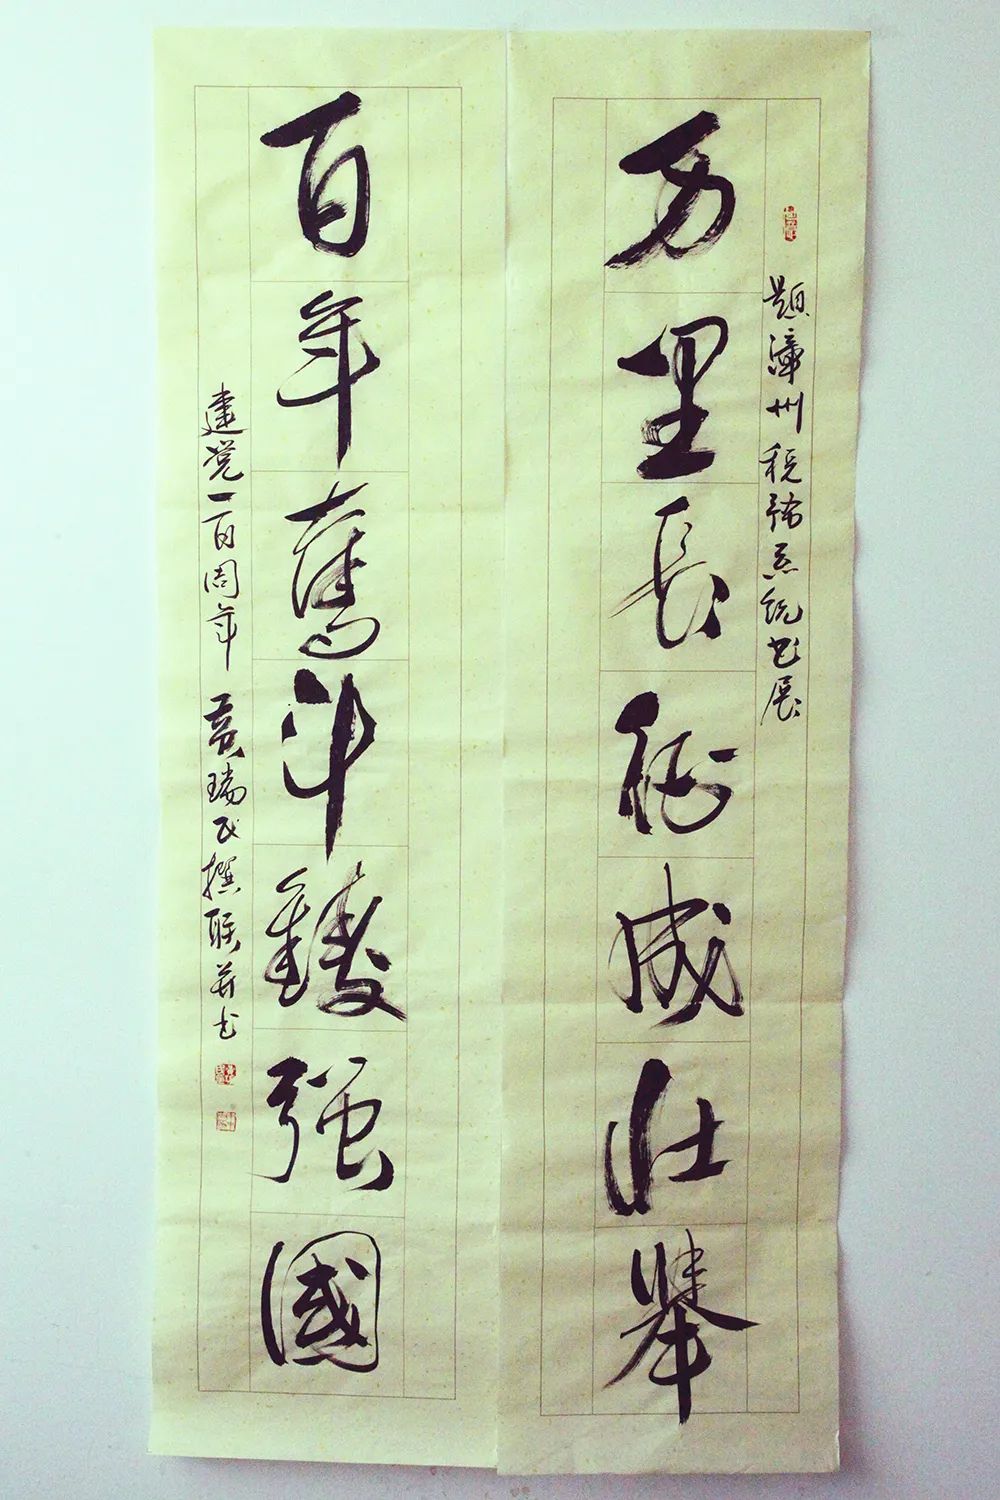 题漳州税務系统书展
万里長征成壮舉
百年奮斗鑄强國
建党一百周年 黄瑞民撰联并书